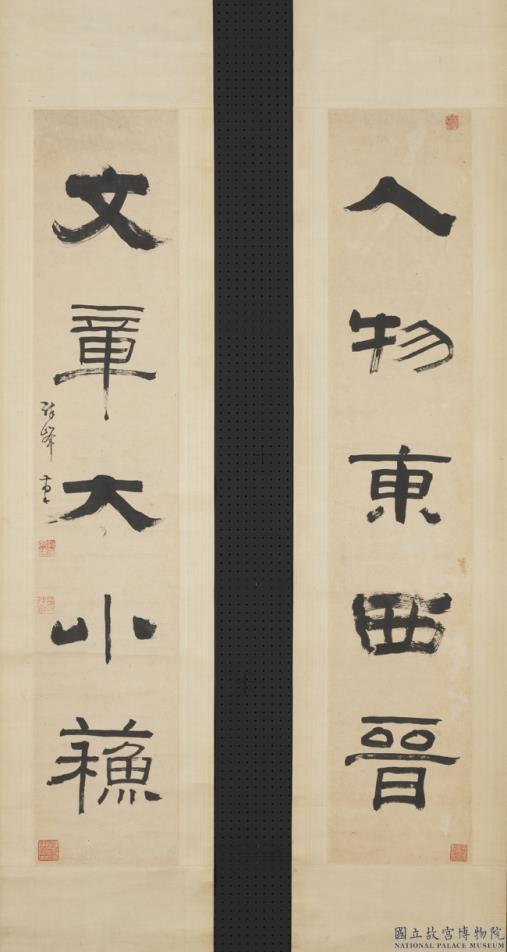 人物東西晉
文章大小蘇
國立故宮博物院
NATIONAL PALACE MUSEUM